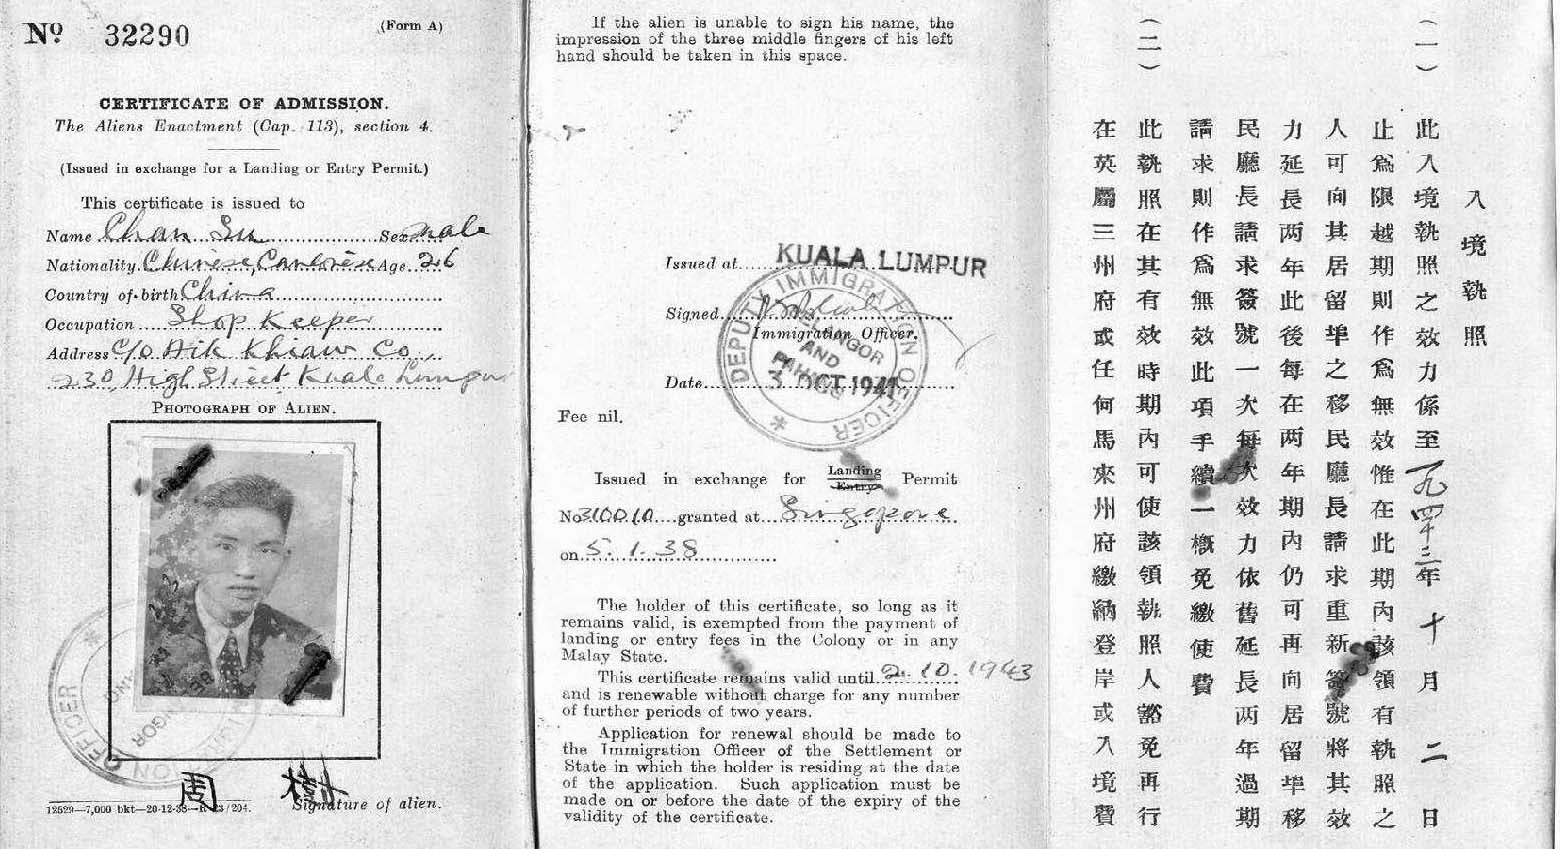 No. 32290
(Form A)
CERTIFICATE OF ADMISSION.
The Aliens Enactment (Cap. 113), section 4.
(Issued in exchange for a Landing or Entry Permit.)
This certificate is issued to
Name Chan Su Sex male
Nationality Chinese, Cantonese Age 26
Country of birth China
Occupation Shop Keeper
Address C/o Aik Khiaw Co,
230 High Street Kuala Lumpur
PHOTOGRAPH OF ALIEN.
周 樹
Signature of alien.
12529—7,000 bkt—20-12-38—R 23/204.
If the alien is unable to sign his name, the
impression of the three middle fingers of his left
hand should be taken in this space.
Issued at KUALA LUMPUR
Signed
Immigration Officer.
DEPUTY IMMIGRATION OFFICER
SELANGOR
AND
PAHANG
Date 3 OCT 1941
Fee nil.
Issued in exchange for Landing Entry Permit
No 310010 granted at Singapore
on 5. 1. 38
The holder of this certificate, so long as it
remains valid, is exempted from the payment of
landing or entry fees in the Colony or in any
Malay State.
This certificate remains valid until 2. 10. 1943
and is renewable without charge for any number
of further periods of two years.
Application for renewal should be made to
the Immigration Officer of the Settlement or
State in which the holder is residing at the date
of the application. Such application must be
made on or before the date of the expiry of the
validity of the certificate.
入境執照
(一)
此入境執照之效力係至一九四三年十月二日
止爲限越期則作爲無效惟在此期內該領有執照之
人可向其居留埠之移民廳長請求重新簽號將其效
力延長两年此後每在两年期內仍可再向居留埠移
民廳長請求簽號一次每次效力依舊延長两年過期
請求則作爲無效此項手續一概免繳使費
(二)
此執照在其有效時期內可使該領執照人豁免再行
在英屬三州府或任何馬來州府繳納登岸或入境費